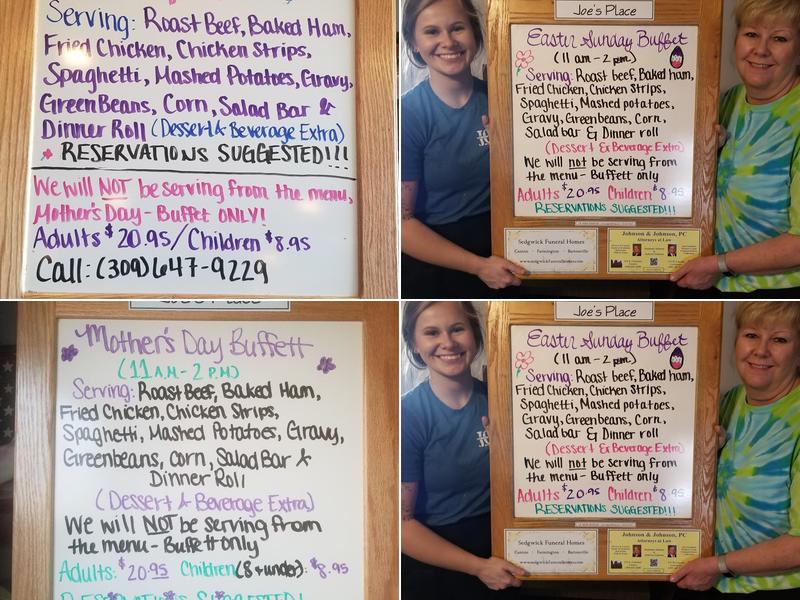 Serving: Roast Beef, Baked Ham,
Fried Chicken, Chicken Strips,
Spaghetti, Mashed Potatoes, Gravy,
Green Beans, Corn, Salad Bar &
Dinner Roll (Dessert & Beverage Extra)
RESERVATIONS SUGGESTED!!!
We will NOT be serving from the menu,
Mother's Day - Buffet ONLY!
Adults $20.95/Children $8.95
Call: (309)647-9229
Joe's Place
Easter Sunday Buffet
(11 am - 2 pm)
Serving: Roast beef, Baked ham,
Fried Chicken, Chicken Strips,
Spaghetti, Mashed potatoes,
Gravy, Greenbeans, Corn,
Salad bar & Dinner roll
(Dessert & Beverage Extra)
We will not be serving from
the menu - Buffett only
Adults $20.95 Children $8.95
RESERVATIONS SUGGESTED!!!
Sedgwick Funeral Homes
Canton Farmington Bartonville
www.sedgwickfuneralhomes.com
Johnson & Johnson, PC
Attorneys at Law
Joe's Place
Mother's Day Buffett
(11 A.M - 2 P.M)
Serving: Roast Beef, Baked Ham,
Fried Chicken, Chicken Strips,
Spaghetti, Mashed Potatoes, Gravy,
Greenbeans, corn, Salad Bar &
Dinner Roll
(Dessert & Beverage Extra)
We will NOT be serving from
the menu - Buffett only
Adults: $20.95 Children (8 & under): $8.95
RESERVATIONS SUGGESTED!
Joe's Place
Easter Sunday Buffet
(11 am - 2 pm)
Serving: Roast beef, Baked ham,
Fried Chicken, Chicken Strips,
Spaghetti, Mashed potatoes,
Gravy, Greenbeans, Corn,
Salad bar & Dinner roll
(Dessert & Beverage Extra)
We will not be serving from
the menu - Buffett only
Adults $20.95 Children $8.95
RESERVATIONS SUGGESTED!!!
Sedgwick Funeral Homes
Canton Farmington Bartonville
www.sedgwickfuneralhomes.com
Johnson & Johnson, PC
Attorneys at Law